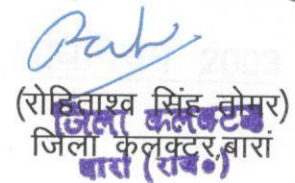 (रोहिताश्व सिंह तोमर)
जिला कलक्टर,बारां
जिला कलक्टर
बारां (राज०)